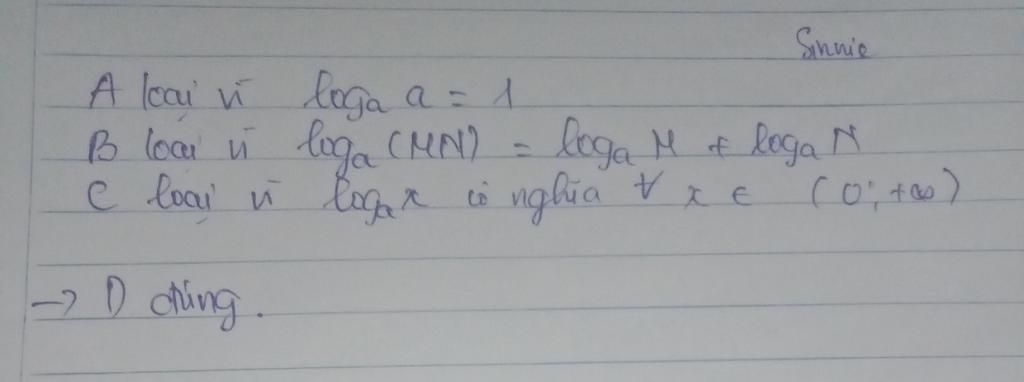 Sinnie
A loại vì logₐ a = 1
B loại vì logₐ (MN) = logₐ M + logₐ N
C loại vì logₐ x có nghĩa ∀ x ∈ (0; +∞)
→ D đúng.